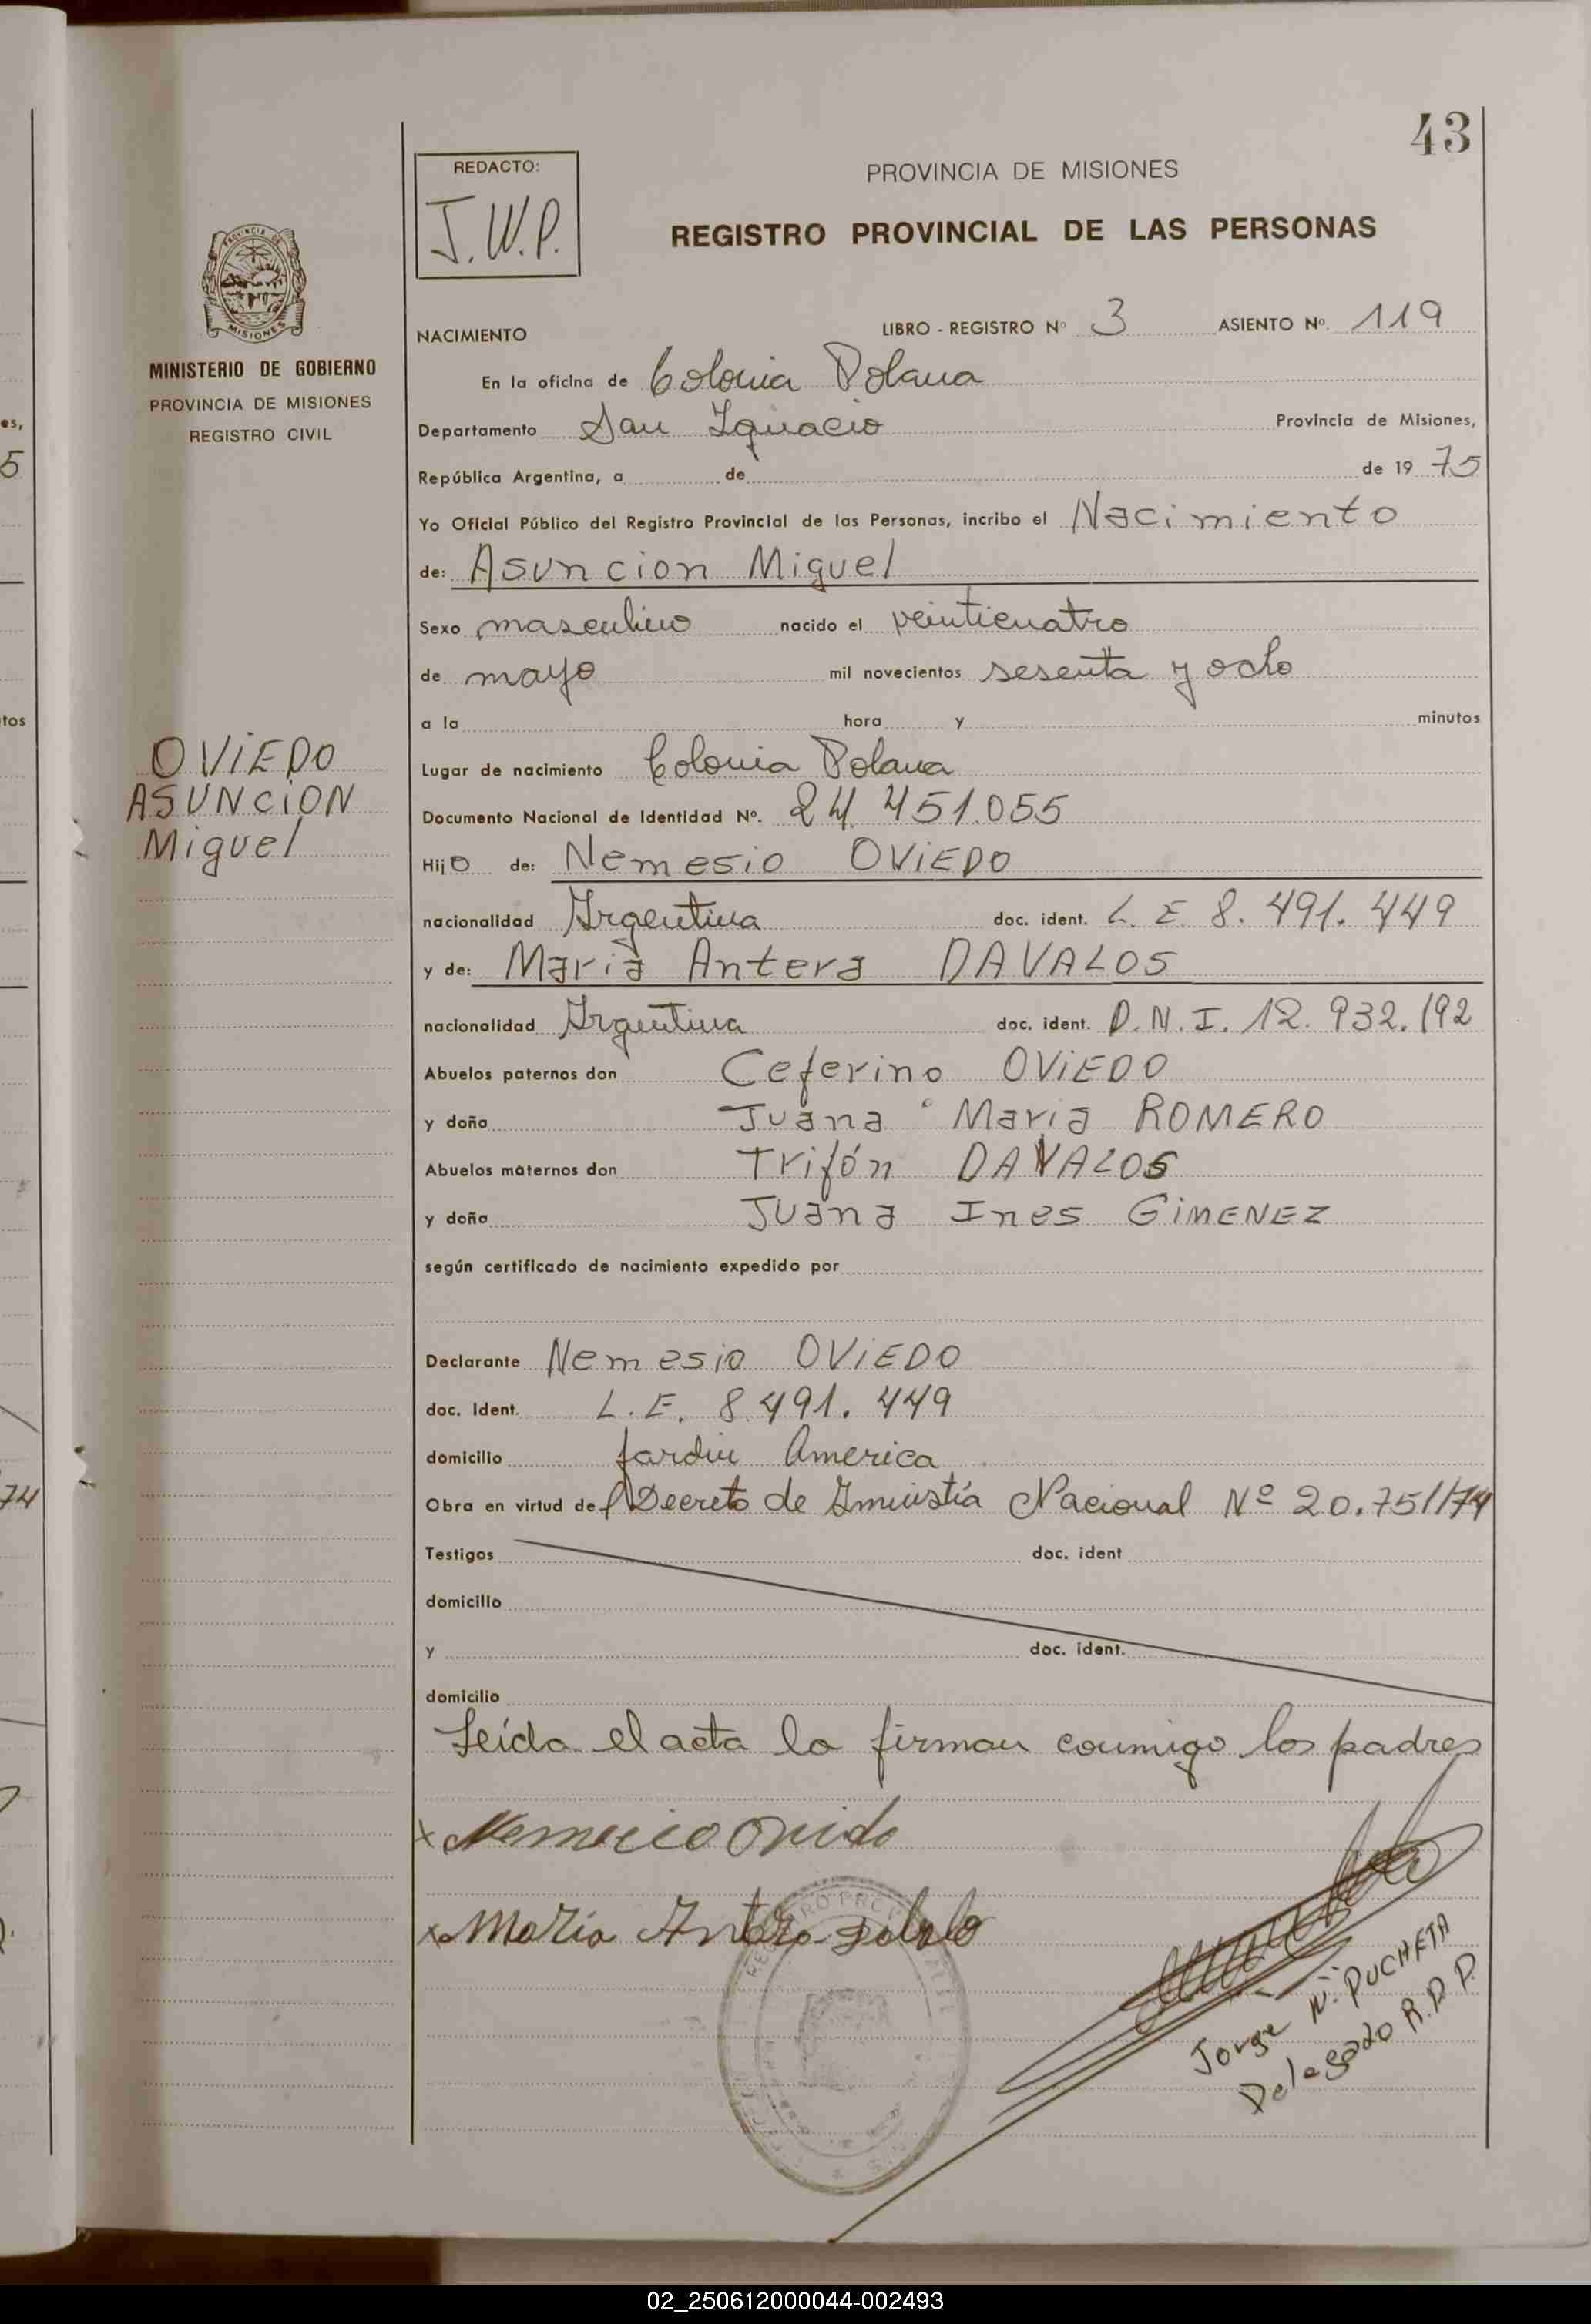 43
REDACTO:
J.W.P.
PROVINCIA DE MISIONES
REGISTRO PROVINCIAL DE LAS PERSONAS
PROVINCIA DE
MISIONES
MINISTERIO DE GOBIERNO
PROVINCIA DE MISIONES
REGISTRO CIVIL
OVIEDO
ASUNCION
Miguel
NACIMIENTO LIBRO - REGISTRO Nº 3 ASIENTO Nº. 119
En la oficina de Colonia Polana
Departamento San Ignacio Provincia de Misiones,
República Argentina, a de de 19 75
Yo Oficial Público del Registro Provincial de las Personas, incribo el Nacimiento
de: Asuncion Miguel
Sexo masculino nacido el veinticuatro
de mayo mil novecientos sesenta y ocho
a la hora y minutos
Lugar de nacimiento Colonia Polana
Documento Nacional de Identidad Nº. 24.451.055
Hijo de: Nemesio OVIEDO
nacionalidad Argentina doc. ident. L.E. 8.491.449
y de: Maria Antera DAVALOS
nacionalidad Argentina doc. ident. D.N.I. 12.932.192
Abuelos paternos don Ceferino OVIEDO
y doña Juana Maria ROMERO
Abuelos maternos don Trifón DAVALOS
y doña Juana Ines GIMENEZ
según certificado de nacimiento expedido por
Declarante Nemesio OVIEDO
doc. Ident. L.E. 8.491.449
domicilio Jardin America
Obra en virtud del Decreto de Amnistía Nacional Nº 20.751/74
Testigos doc. ident
domicilio
y doc. ident.
domicilio
Leída el acta la firman conmigo los padres
x Nemecio Oviedo
x Maria Antera
Jorge W. DUCHETA
Delegado R.D.P.
es,
5
tos
74
02_250612000044-002493